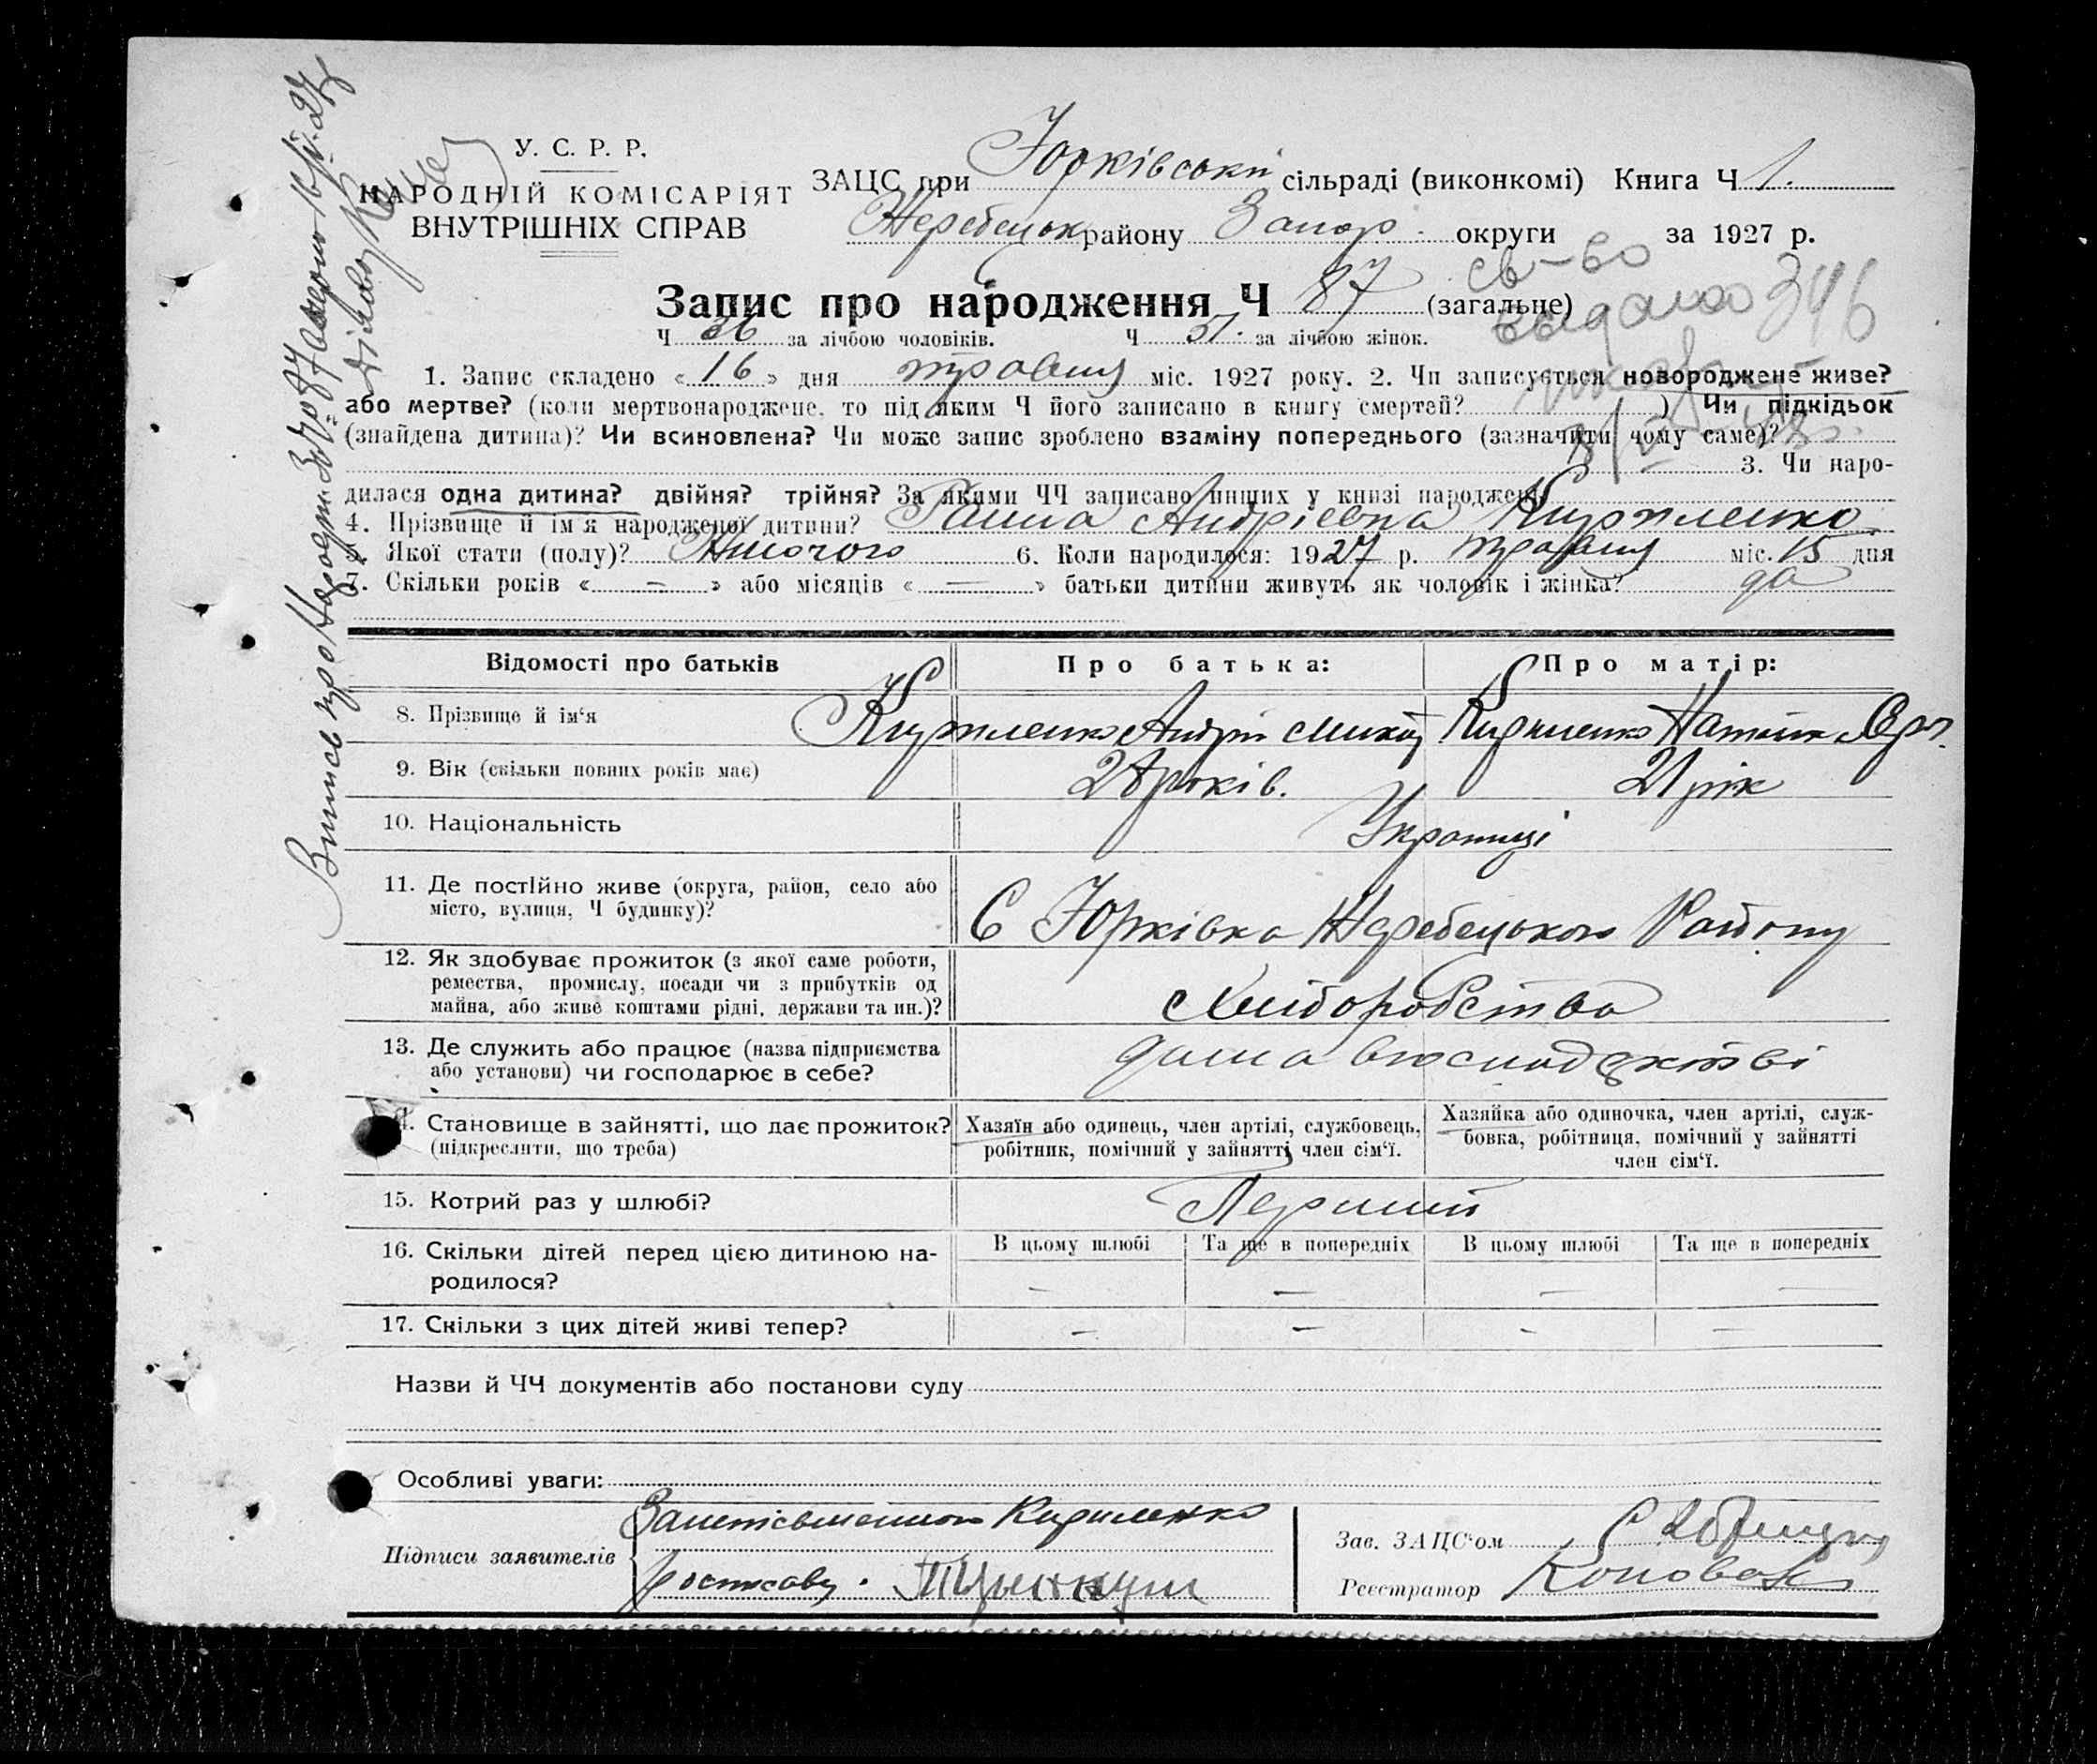 У. С. Р. Р.
НАРОДНІЙ КОМІСАРІЯТ
ВНУТРІШНІХ СПРАВ
ЗАЦС при Юрківській сільраді (виконкомі) Книга Ч 1.
Жеребецьк району Запор. округи за 1927 р.
Запис про народження Ч 87 (загальне)
св-во
выдано 346
Ч 36 за лічбою чоловіків. Ч 51. за лічбою жінок.
1. Запис складено « 16 » дня травня міс. 1927 року. 2. Чи записується новороджене живе?
або мертве? (коли мертвонароджене, то під яким Ч його записано в книгу смертей? ) Чи підкідьок
(знайдена дитина)? Чи всиновлена? Чи може запис зроблено взаміну попереднього (зазначити чому саме)?
3. Чи наро-
дилася одна дитина? двійня? трійня? За якими ЧЧ записано инших у книзі народжень
4. Прізвище й ім'я народженої дитини? Андріевна Кириленко
5. Якої стати (полу)? Жіночого 6. Коли народилося: 1927 р. травня міс. 15 дня
7. Скільки років « — » або місяців « — » батьки дитини живуть як чоловік і жінка? да
Відомості про батьків Про батька: Про матір:
8. Прізвище й ім'я Кириленко Андрій Кириленко
9. Вік (скільки повних років має) 28 років. 21 рік
10. Національність Українці
11. Де постійно живе (округа, район, село або
місто, вулиця, Ч будинку)?
С Юрківка Жеребецького Району
12. Як здобуває прожиток (з якої саме роботи,
ремества, промислу, посади чи з прибутків од
майна, або живе коштами рідні, держави та ин.)?
Хліборобства
13. Де служить або працює (назва підприємства
або установи) чи господарює в себе?
дома в господарстві
14. Становище в зайнятті, що дає прожиток?
(підкреслити, що треба)
Хазяїн або одинець, член артілі, службовець,
робітник, помічний у зайнятті член сім'ї.
Хазяйка або одиночка, член артілі, служ-
бовка, робітниця, помічний у зайнятті
член сім'ї.
15. Котрий раз у шлюбі? Перший
16. Скільки дітей перед цією дитиною на-
родилося?
В цьому шлюбі Та ще в попередніх В цьому шлюбі Та ще в попередніх
— — — —
17. Скільки з цих дітей живі тепер? — — — —
Назви й ЧЧ документів або постанови суду
Особливі уваги:
Підписи заявителів
Кириленко
Зав. ЗАЦС'ом
Реєстратор
Випись про